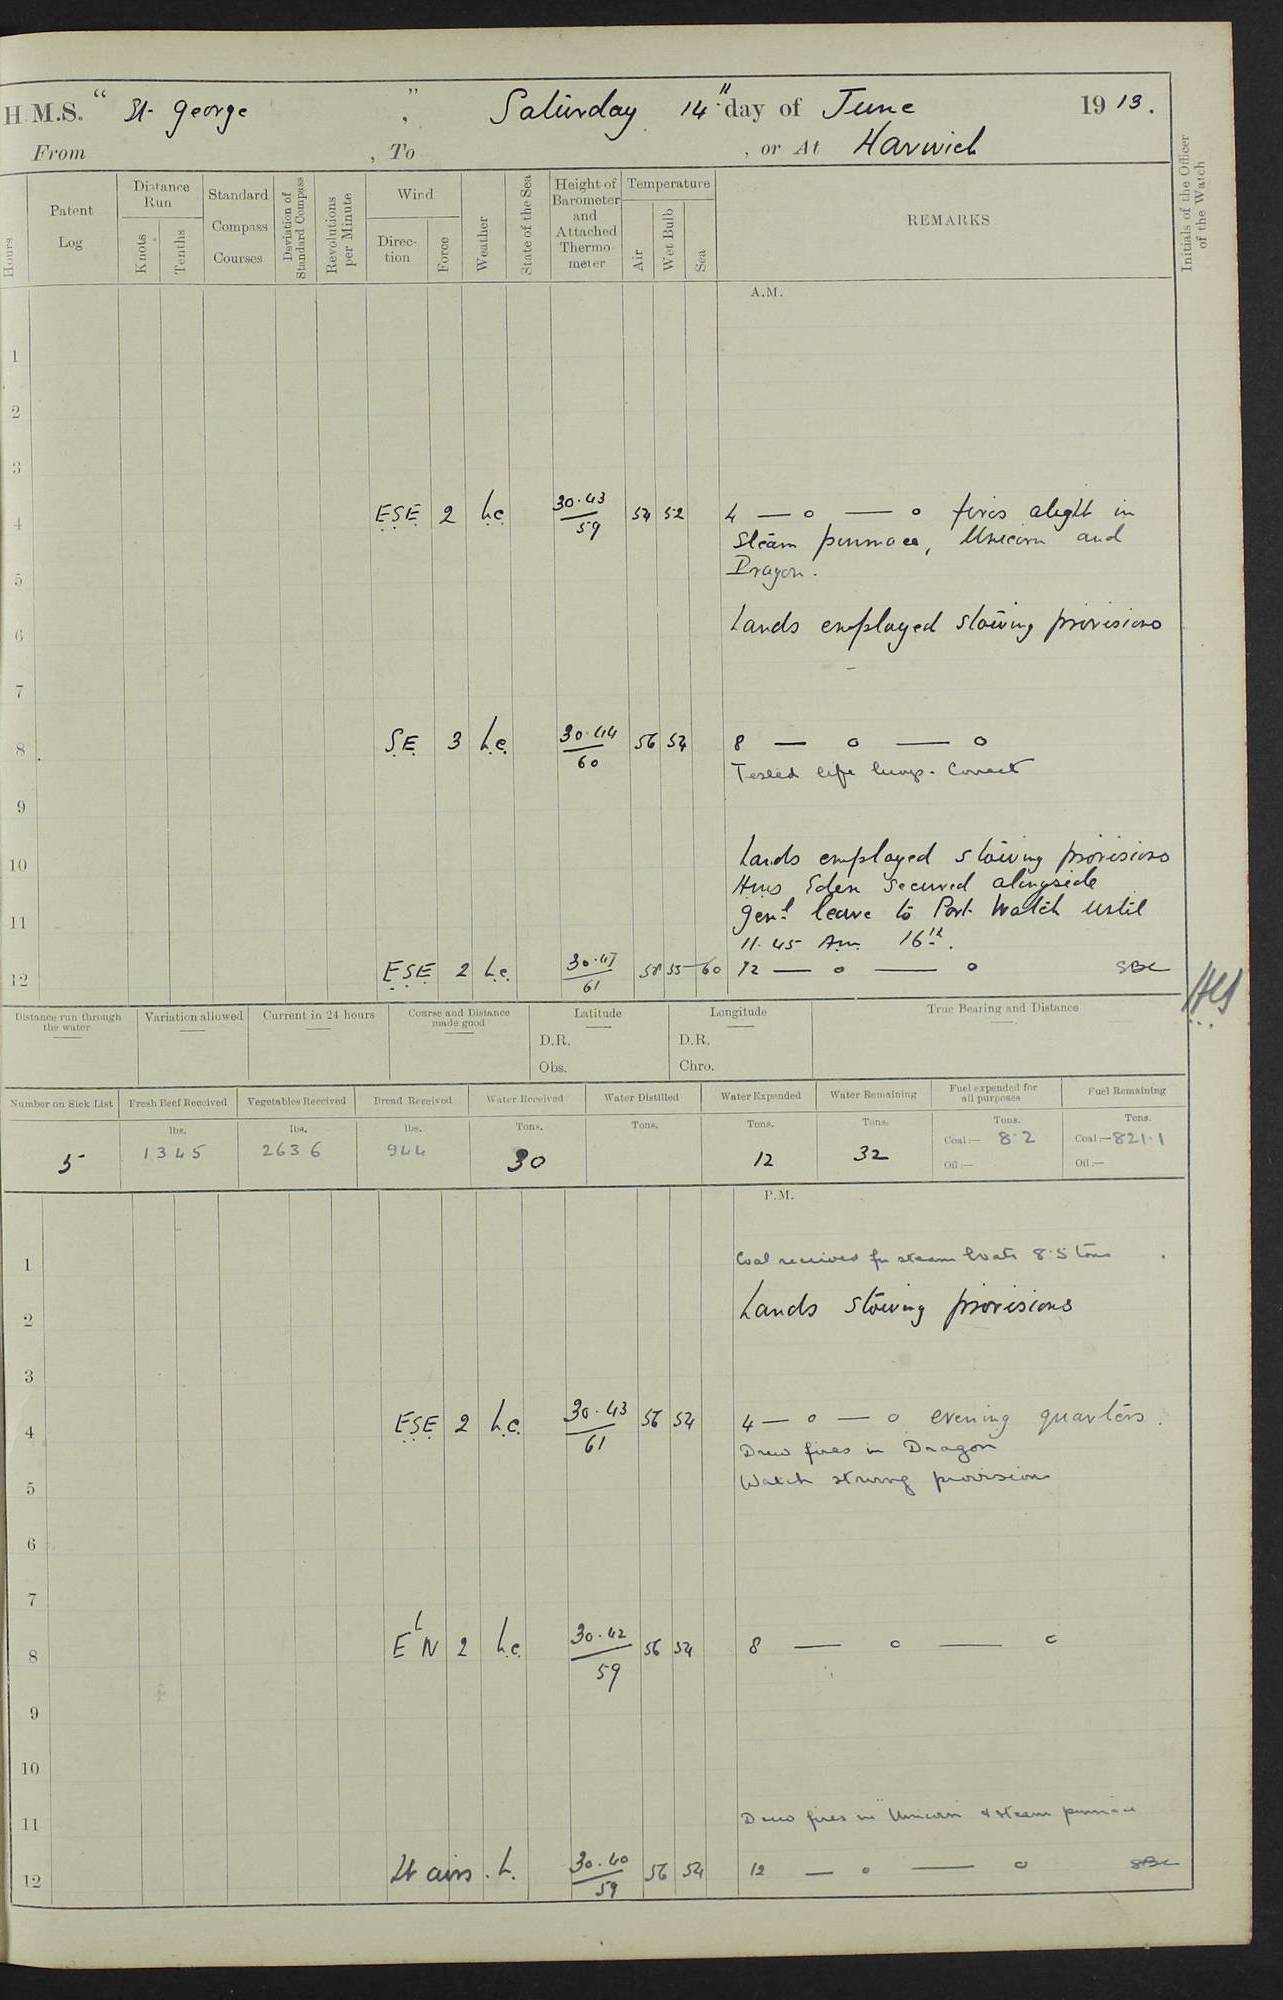 H.M.S. " St. George " , Saturday 14th day of June 1913.
From , To , or At Harwich
Hours
Patent Log
Distance Run
Knots
Tenths
Standard Compass Courses
Deviation of Standard Compass
Revolutions per Minute
Wind
Direction
Force
Weather
State of the Sea
Height of Barometer and Attached Thermometer
Temperature
Air
Wet Bulb
Sea
REMARKS
Initials of the Officer of the Watch
A.M.
1
2
3
4 ESE 2 b.c. 30.43/59 54 52 4 — o — o fires alight in
Steam pinnace, Unicorn and
Dragon.
5
6 hands employed stowing provisions
7
8 S.E. 3 b.c. 30.44/60 56 54 8 — o — o
Tested life buoys. Correct
9
10 hands employed stowing provisions
HMS Eden secured alongside
Genl leave to Port Watch until
11 11.45 Am 16th.
12 ESE 2 b.c. 30.47/61 58 55 60 12 — o — o
Distance run through the water
Variation allowed
Current in 24 hours
Course and Distance made good
Latitude
D.R.
Obs.
Longitude
D.R.
Chro.
True Bearing and Distance
Number on Sick List Fresh Beef Received Vegetables Received Bread Received Water Received Water Distilled Water Expended Water Remaining Fuel expended for all purposes Fuel Remaining
lbs. lbs. lbs. Tons. Tons. Tons. Tons. Tons. Tons.
5 1345 2636 944 30 12 32 Coal:— 8.2 Coal:—821.1
Oil:— Oil:—
P.M.
1 Coal received for steam boats 8.5 tons
2 hands stowing provisions
3
4 ESE 2 b.c. 30.43/61 56 54 4 — o — o evening quarters.
Drew fires in Dragon
5 Watch stowing provisions
6
7
8 E b N 2 b.c. 30.42/59 56 54 8 — o — o
9
10
11 Drew fires in Unicorn & steam pinnace
12 Lt airs. b. 30.40/59 56 54 12 — o — o